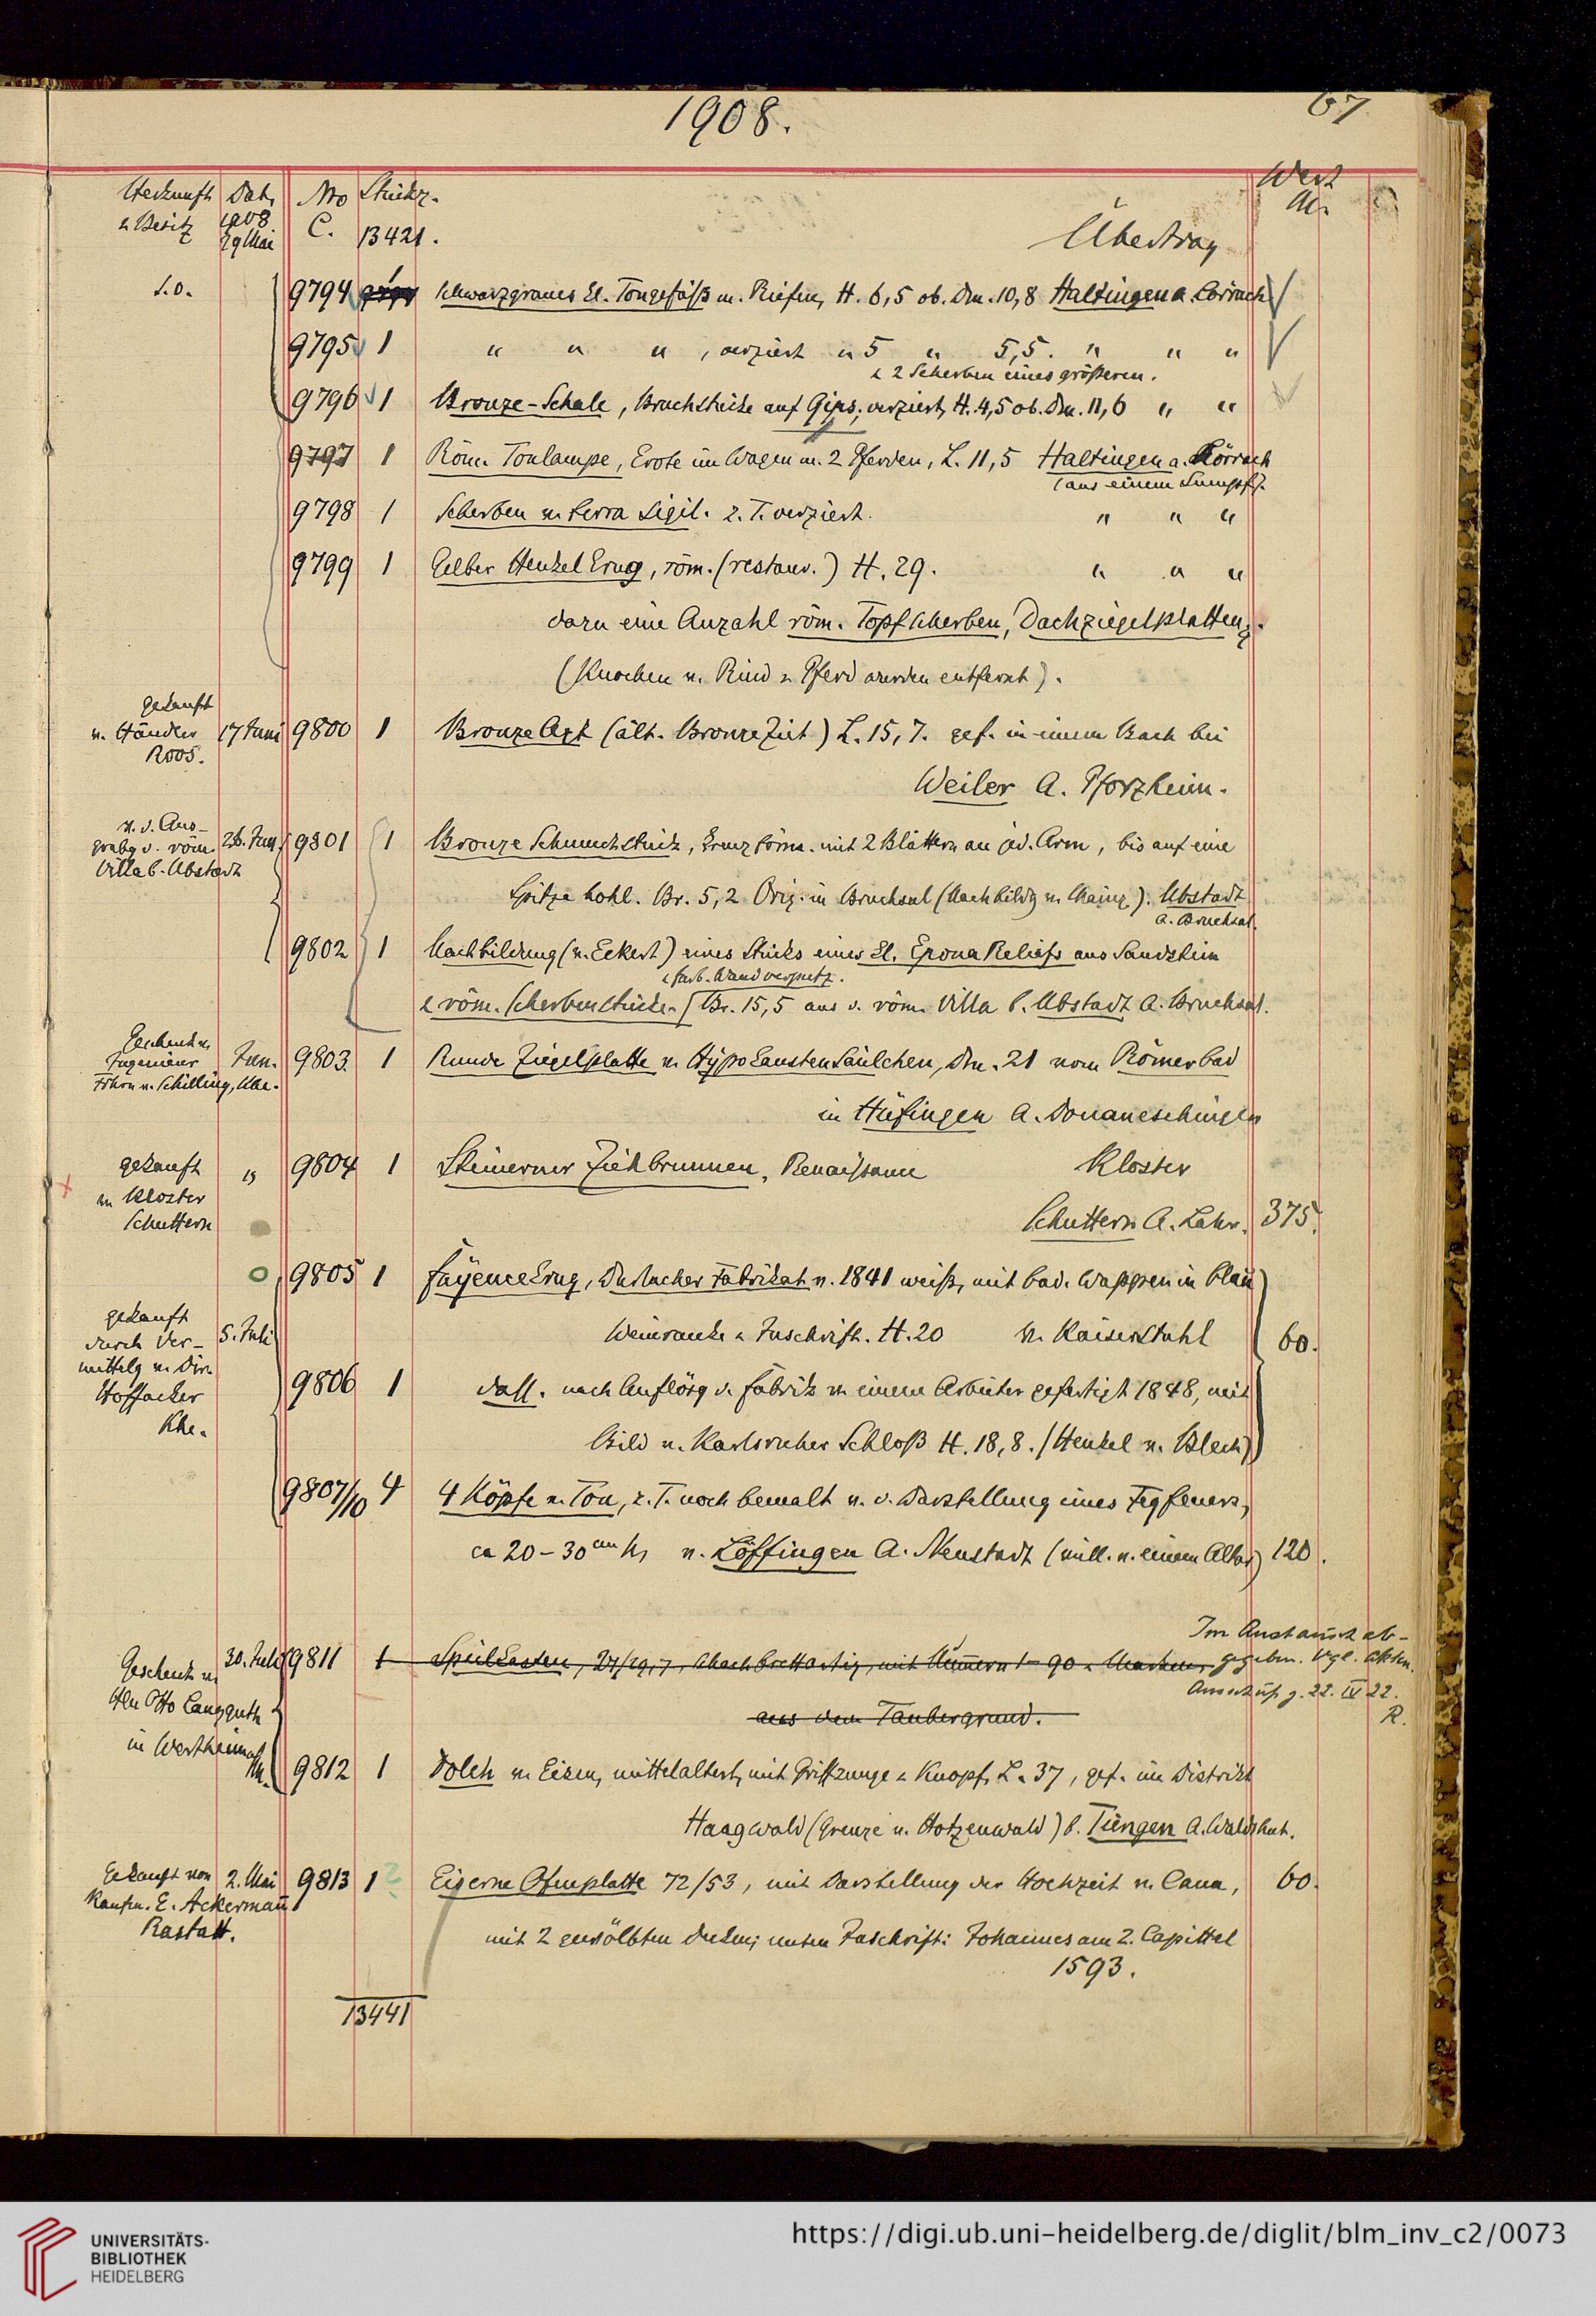 1908.
67
Herkunft Dat. No Stückz. Wert
& Besitz 1908 C. 13421. Übertrag M.
29 Mai
s.o. 9794 1 Schwarzgraues kl. Tongefäß m. Riefen, H. 6,5 ob. Dm. 10,8 Haltingen A. Lörrach
9795 1 " " " , verziert " 5 " 5,5. " " "
& 2 Scherben eines größeren.
9796 1 Bronze-Schale, Bruchstücke auf Gips, verziert, H. 4,5 ob. Dm. 11,6 " "
9797 1 Röm. Tonlampe, Erote im Wagen m. 2 Pferden, L. 11,5 Haltingen a. Lörrach
(aus einem Sumpf).
9798 1 Scherben v. terra sigil. z. T. verziert. " " "
9799 1 Gelber Henkelkrug, röm. (restaur.) H. 29. " " "
dazu eine Anzahl röm. Topfscherben, Dachziegelplatten,
(Knochen v. Rind & Pferd wurden entfernt).
gekauft
v. Händler 17 Juni 9800 1 Bronze Axt (ält. Bronze Zeit) L. 15,7. gef. in einem Bach bei
Roos.
Weiler A. Pforzheim.
v. d. Aus-
grabg d. röm. 26. Jun. 9801 1 Bronze Schmuckstück, kreuzförm. mit 2 Blättern an jed. Arm, bis auf eine
Villa b. Ubstadt
Spitze hohl. Br. 5,2 Orig. in Bruchsal (Nachbildg v. Mainz). Ubstadt
A. Bruchsal.
9802 1 Nachbildung (v. Eckert) eines Stücks eines kl. Epona Reliefs aus Sandstein
& farb. Wandverputz.
& röm. Scherbenstücke. Br. 15,5 aus d. röm. Villa b. Ubstadt A. Bruchsal.
Geschenk v.
Ingenieur Jun. 9803. 1 Runde Ziegelplatte v. Hypokausten Säulchen, Dm. 21 vom Römerbad
Frhrn v. Schilling, Khe.
in Hüfingen A. Donaueschingen
gekauft " 9804 1 Steinerner Ziehbrunnen, Renaissance Kloster
v. Kloster
Schuttern Schuttern A. Lahr. 375.
9805 1 Fayencekrug, Durlacher Fabrikat v. 1841 weiß, mit bad. Wappen in blau
gekauft
durch Ver- 5. Juli Weinranke & Inschrift. H. 20 v. Kaiserstuhl 60.
mittelg v. Dir.
Hoffacker 9806 1 dass. nach Auflösg d. Fabrik v. einem Arbeiter gefertigt 1848, mit
Khe. Bild v. Karlsruher Schloß H. 18,8. (Henkel v. Blech)
9807/10 4 4 Köpfe v. Ton, z. T. noch bemalt v. d. Darstellung eines Fegfeuers,
ca 20-30 cm h, v. Löffingen A. Neustadt (vill. v. einem Altar) 120.
Im Austausch ab-
Geschenk v. 30. Juli 9811 1 Spielkasten, 24/29,7, schachbrettartig, mit Nummern 1-90 & Marken, gegeben. Vgl. Akten.
Ausschuß z. 22. IV 22.
Hln Otto Langguth aus dem Taubergrund. R.
in Wertheim a/
M. 9812 1 Dolch v. Eisen, mittelalterl, mit Griffzunge & Knopf, L. 37, gef. im Distrikt
Haagwald (Grenze v. Hotzenwald) b. Tiengen A. Waldshut.
Gekauft von 2. Mai 9813 1 Eiserne Ofenplatte 72/53, mit Darstellung der Hochzeit v. Cana, 60.
Kaufm. E. Ackermann
Rastatt. mit 2 gewölbten unten Inschrift: Johannes am 2. Capittel
1593.
13441
UNIVERSITÄTS-
BIBLIOTHEK
HEIDELBERG
https://digi.ub.uni-heidelberg.de/diglit/blm_inv_c2/0073